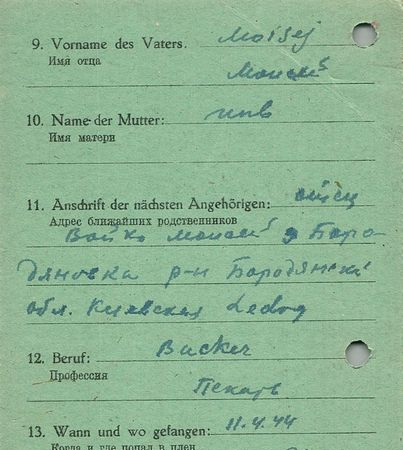 9. Vorname des Vaters. Moisej
Имя отца
Моисей
10. Name der Mutter:
Имя матери
11. Anschrift der nächsten Angehörigen: отец
Адрес ближайших родственников
Бойко Моисей
р-н Бородянский
обл. Киевская
12. Beruf: Bäcker
Профессия
Пекарь
13. Wann und wo gefangen: 11.4.44
Когда и где попал в плен